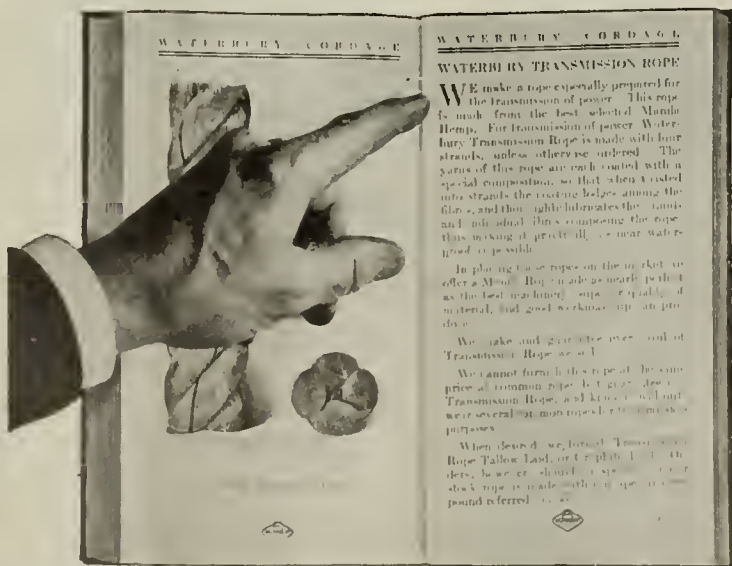 WATERBURY CORDAGE
WATERBURY CORDAGE
WATERBURY TRANSMISSION ROPE
WE make a rope especially prepared for
the transmission of power. This rope
is made from the best selected Manila
Hemp. For transmission of power Water-
bury Transmission Rope is made with four
strands, unless otherwise ordered. The
yarns of this rope are each coated with a
special composition, so that when twisted
into strands the coating lodges among the
fibres, and thoroughly lubricates the strands
and individual fibres composing the rope,
thus making it practically as near water-
proof as possible.
In placing these ropes on the market we
offer a Manila Rope made as nearly perfect
as the best machinery, superior quality of
material, and good workmanship can pro-
duce.
We make and guarantee every coil of
Transmission Rope we sell.
We cannot furnish this rope at the same
price as common rope, but
Transmission Rope, and
wear several common ropes for transmission
purposes.
When desired, we furnish Transmission
Rope Tallow Laid, or
however, should
stock rope is made with
pound referred